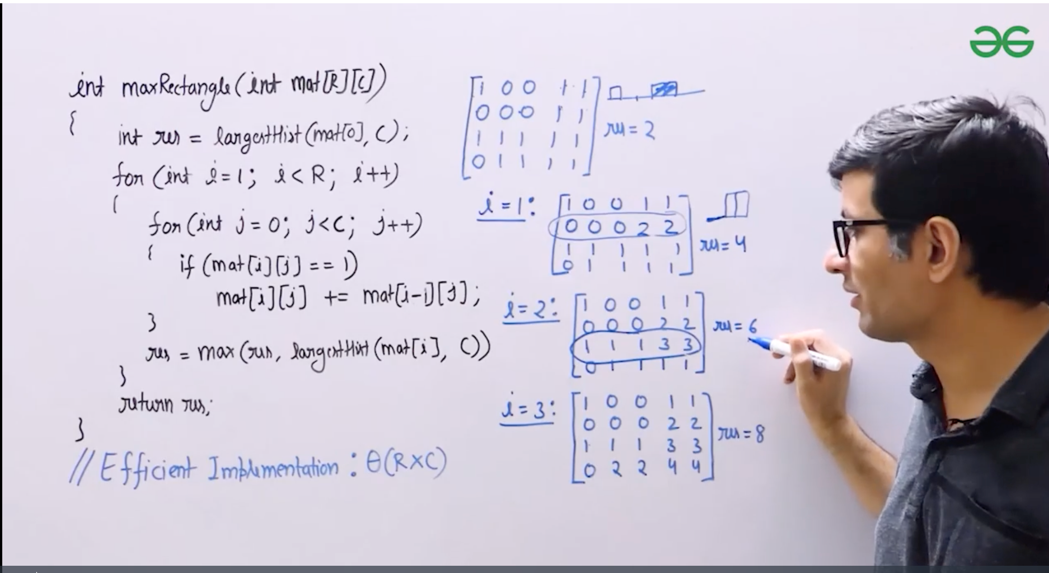 int maxRectangle(int mat[R][C])
{
int res = largestHist(mat[0], C);
for (int i=1; i<R; i++)
{
for (int j=0; j<C; j++)
{
if (mat[i][j] == 1)
mat[i][j] += mat[i-1][j];
}
res = max(res, largestHist(mat[i], C))
}
return res;
}
// Efficient Implementation : θ(R×C)
1 0 0 1 1
0 0 0 1 1
1 1 1 1 1
0 1 1 1 1
res = 2
i=1:
1 0 0 1 1
0 0 0 2 2
1 1 1 1 1
0 1 1 1 1
res = 4
i=2:
1 0 0 1 1
0 0 0 2 2
1 1 1 3 3
0 1 1 1 1
res = 6
i=3:
1 0 0 1 1
0 0 0 2 2
1 1 1 3 3
0 2 2 4 4
res = 8